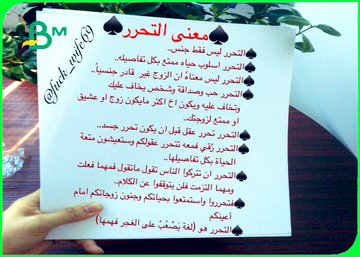 BM
@fuck_wife69
معنى التحرر
التحرر ليس فقط جنس..
التحرر اسلوب حياه ممتع بكل تفاصيله..
التحرر ليس معناهُ ان الزوج غير قادر جنسياً..
التحرر حب وصداقة وشخص يخاف عليك
وتخاف عليه ويكون اخ اكثر مايكون زوج او عشيق
او ممتع لزوجتك..
التحرر تحرر عقل قبل ان يكون تحرر جسد..
التحرر رُقي فمعه تتحرر عقولكم وستعيشون متعة
الحياة بكل تفاصيلها..
التحرر ان تتركوا الناس تقول ماتقول فمهما فعلت
ومهما التزمت فلن يتوقفوا عن الكلام..
فتحرروا واستمتعوا بحياتكم وجنون زوجاتكم امام
أعينكم
التحرر هو (لغة يَصْعُبْ على الغجر فهمها)